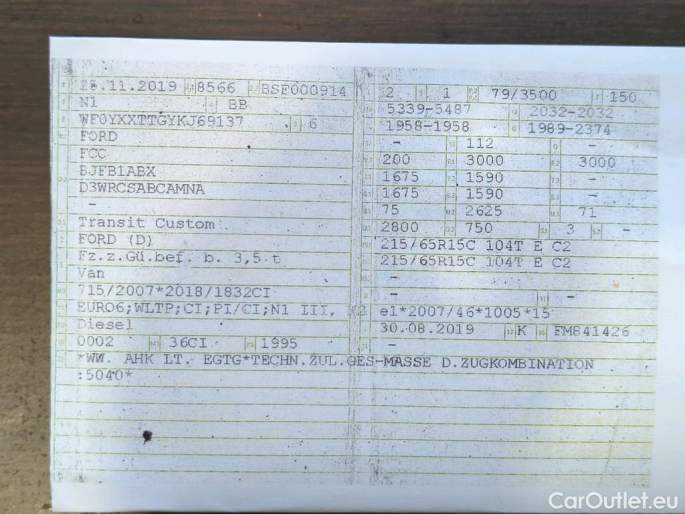 28.11.2019 8566 BSF000914
N1 BB
WF0YXXTTGYKJ69137 6
FORD
FCC
BJFB1ABX
D3WRCSABCAMNA
-
Transit Custom
FORD (D)
Fz.z.Gü.bef. b. 3,5 t
Van
715/2007*2018/1832CI
EURO6;WLTP;CI;PI/CI;N1 III,
Diesel
0002 36CI 1995
*WW. AHK LT. EGTG*TECHN.ZUL.GES-MASSE D.ZUGKOMBINATION
:5040*
2 1 79/3500 150
5339-5487 2032-2032
1958-1958 1989-2374
- 112 -
200 3000 3000
1675 1590 -
1675 1590 -
75 2625 71
2800 750 3 -
215/65R15C 104T E C2
215/65R15C 104T E C2
-
- -
e1*2007/46*1005*15
30.08.2019 K FM841426
-
CarOutlet.eu